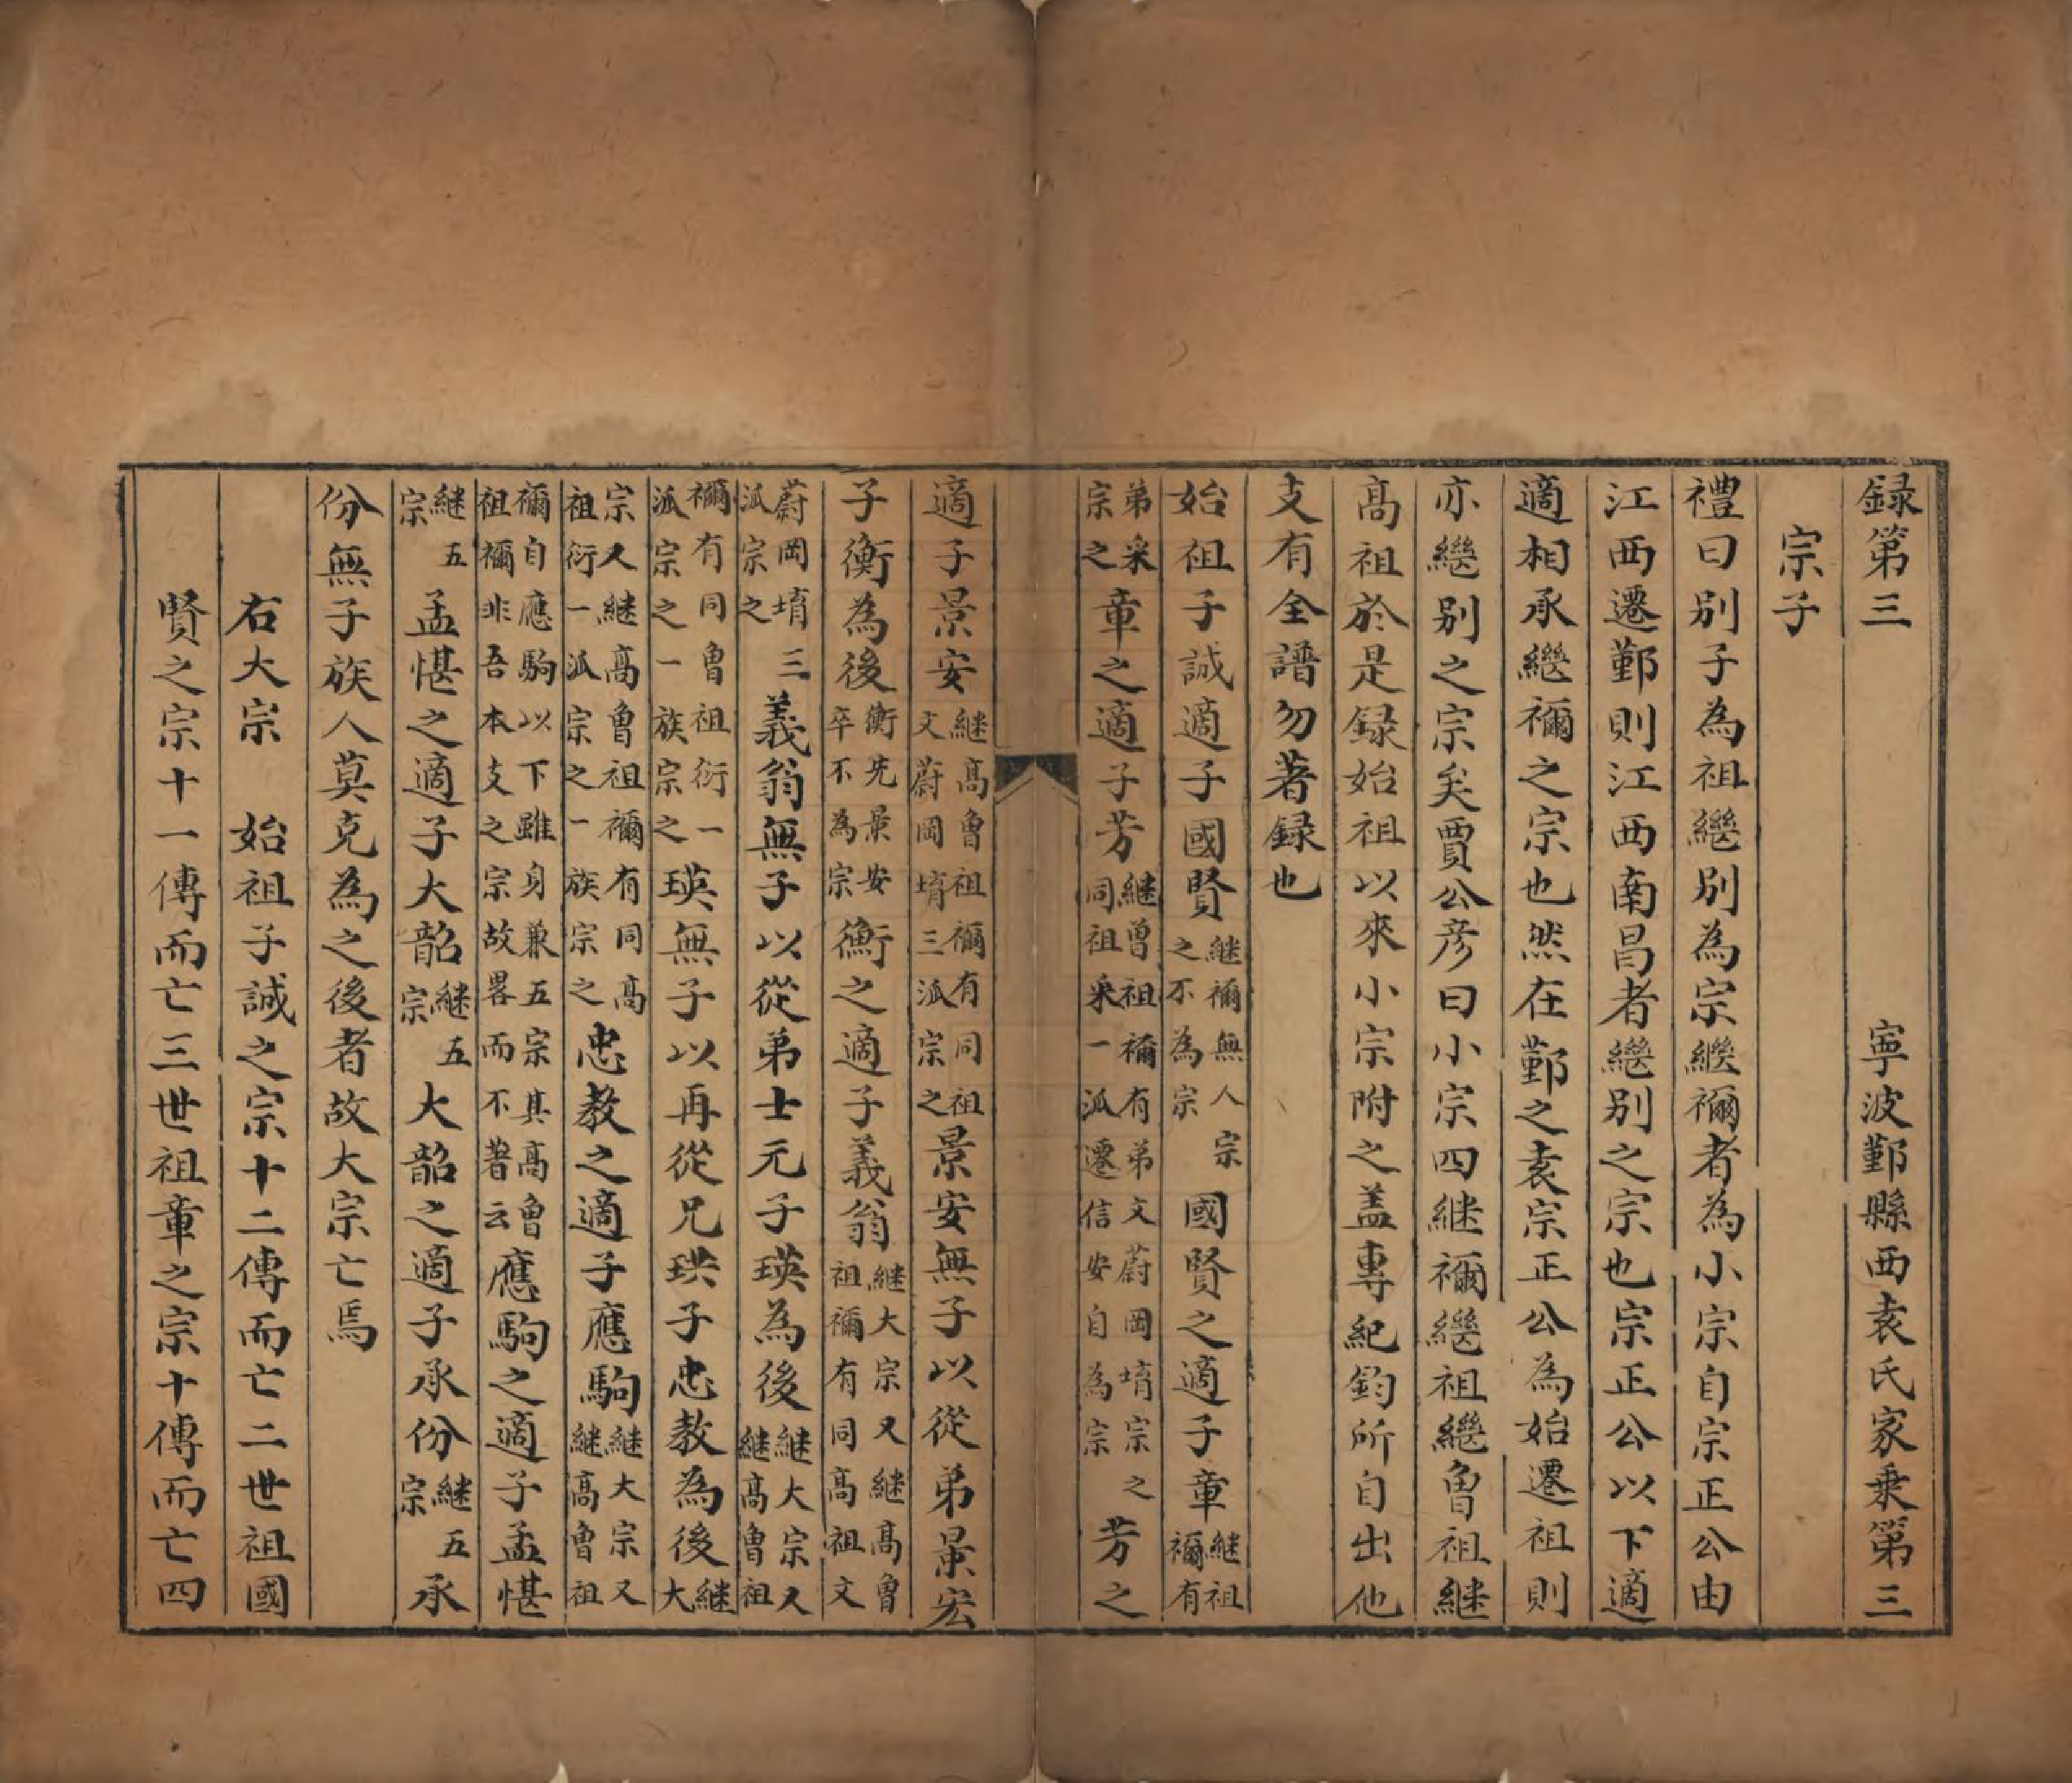 録第三　寧波鄞縣西袁氏家乗第三
宗子
禮曰别子為祖繼别為宗繼禰者為小宗自宗正公由
江西遷鄞則江西南昌者繼别之宗也宗正公以下適
適相承繼禰之宗也然在鄞之袁宗正公為始遷祖則
亦繼别之宗矣賈公彦曰小宗四継禰繼祖繼曾祖継
高祖於是録始祖以來小宗附之盖專紀鈞所自出他
支有全譜勿著録也
始祖子誠適子國賢継禰無人宗之不為宗國賢之適子章継祖禰有
弟采宗之章之適子芳継曾祖禰有弟文蔚岡堉宗之同祖采一派遷信安自為宗芳之
適子景安継高曾祖禰有同祖文蔚岡堉三派宗之景安無子以從弟景宏
子衡為後衡先景安卒不為宗衡之適子義翁継大宗又継高曾祖禰有同高祖文
蔚岡堉三派宗之義翁無子以從弟士元子瑛為後継大宗又継高曾祖
禰有同曾祖衍一派宗之一族宗之瑛無子以再從兄珙子忠敎為後継大
宗又継高曾祖禰有同高祖衍一派宗之一族宗之忠敎之適子應駒継大宗又継高曾祖
禰自應駒以下雖身兼五宗其高曾祖禰非吾本支之宗故畧而不著云應駒之適子孟愖
継五宗孟愖之適子大韶継五宗大韶之適子承份継五宗承
份無子族人莫克為之後者故大宗亡焉
右大宗　始祖子誠之宗十二傳而亡二世祖國
賢之宗十一傳而亡三世祖章之宗十傳而亡四